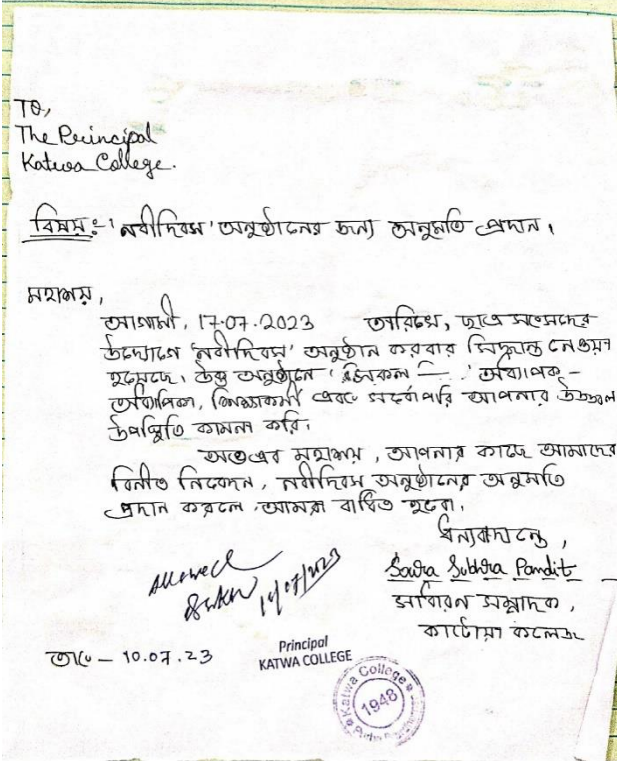 To,
The Principal
Katwa College.
বিষয়:- 'নবীদিবস' অনুষ্ঠানের জন্য অনুমতি প্রদান।
মহাশয়,
আগামী, 17.07.2023 তারিখে, ছাত্র সংসদের
উদ্যোগে 'নবীদিবস' অনুষ্ঠান করবার সিদ্ধান্ত নেওয়া
হয়েছে, উক্ত অনুষ্ঠানে সকল অধ্যাপক-
অধ্যাপিকা, শিক্ষাকর্মী এবং সর্বোপরি আপনার উজ্জ্বল
উপস্থিতি কামনা করি।
অতএব মহাশয়, আপনার কাছে আমাদের
বিনীত নিবেদন, নবীদিবস অনুষ্ঠানের অনুমতি
প্রদান করলে আমরা বাধিত হবো।
ধন্যবাদান্তে,
Subhra Pandit
সাধারন সম্পাদক,
কাটোয়া কলেজ
Allowed
তাং – 10.07.23
Principal
KATWA COLLEGE
Katwa College
1948